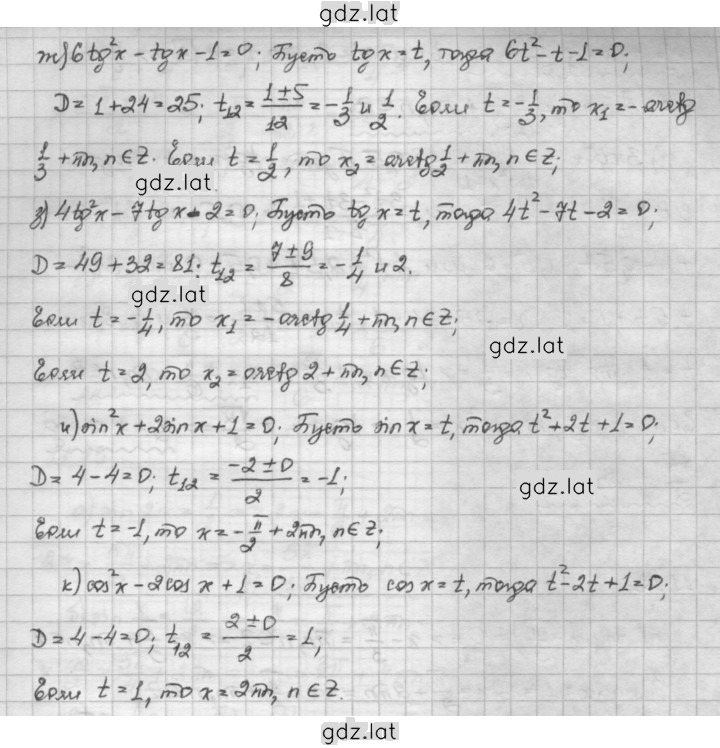 gdz.lat
ж) 6tg²x - tgx - 1 = 0; Пусть tgx = t, тогда 6t² - t - 1 = 0;
D = 1 + 24 = 25; t₁₂ = (1±5)/12 = -1/3 и 1/2. Если t = -1/3, то x₁ = -arctg
1/3 + πn, n∈Z. Если t = 1/2, то x₂ = arctg 1/2 + πn, n∈Z;
gdz.lat
з) 4tg²x - 7tgx - 2 = 0; Пусть tgx = t, тогда 4t² - 7t - 2 = 0;
D = 49 + 32 = 81; t₁₂ = (7±9)/8 = -1/4 и 2.
gdz.lat
Если t = -1/4, то x₁ = -arctg 1/4 + πn, n∈Z;
gdz.lat
Если t = 2, то x₂ = arctg 2 + πn, n∈Z;
и) sin²x + 2sinx + 1 = 0; Пусть sinx = t, тогда t² + 2t + 1 = 0;
D = 4 - 4 = 0; t₁₂ = (-2±0)/2 = -1;
gdz.lat
Если t = -1, то x = -π/2 + 2πn, n∈Z;
к) cos²x - 2cosx + 1 = 0; Пусть cosx = t, тогда t² - 2t + 1 = 0;
D = 4 - 4 = 0; t₁₂ = (2±0)/2 = 1;
Если t = 1, то x = 2πn, n∈Z.
gdz.lat